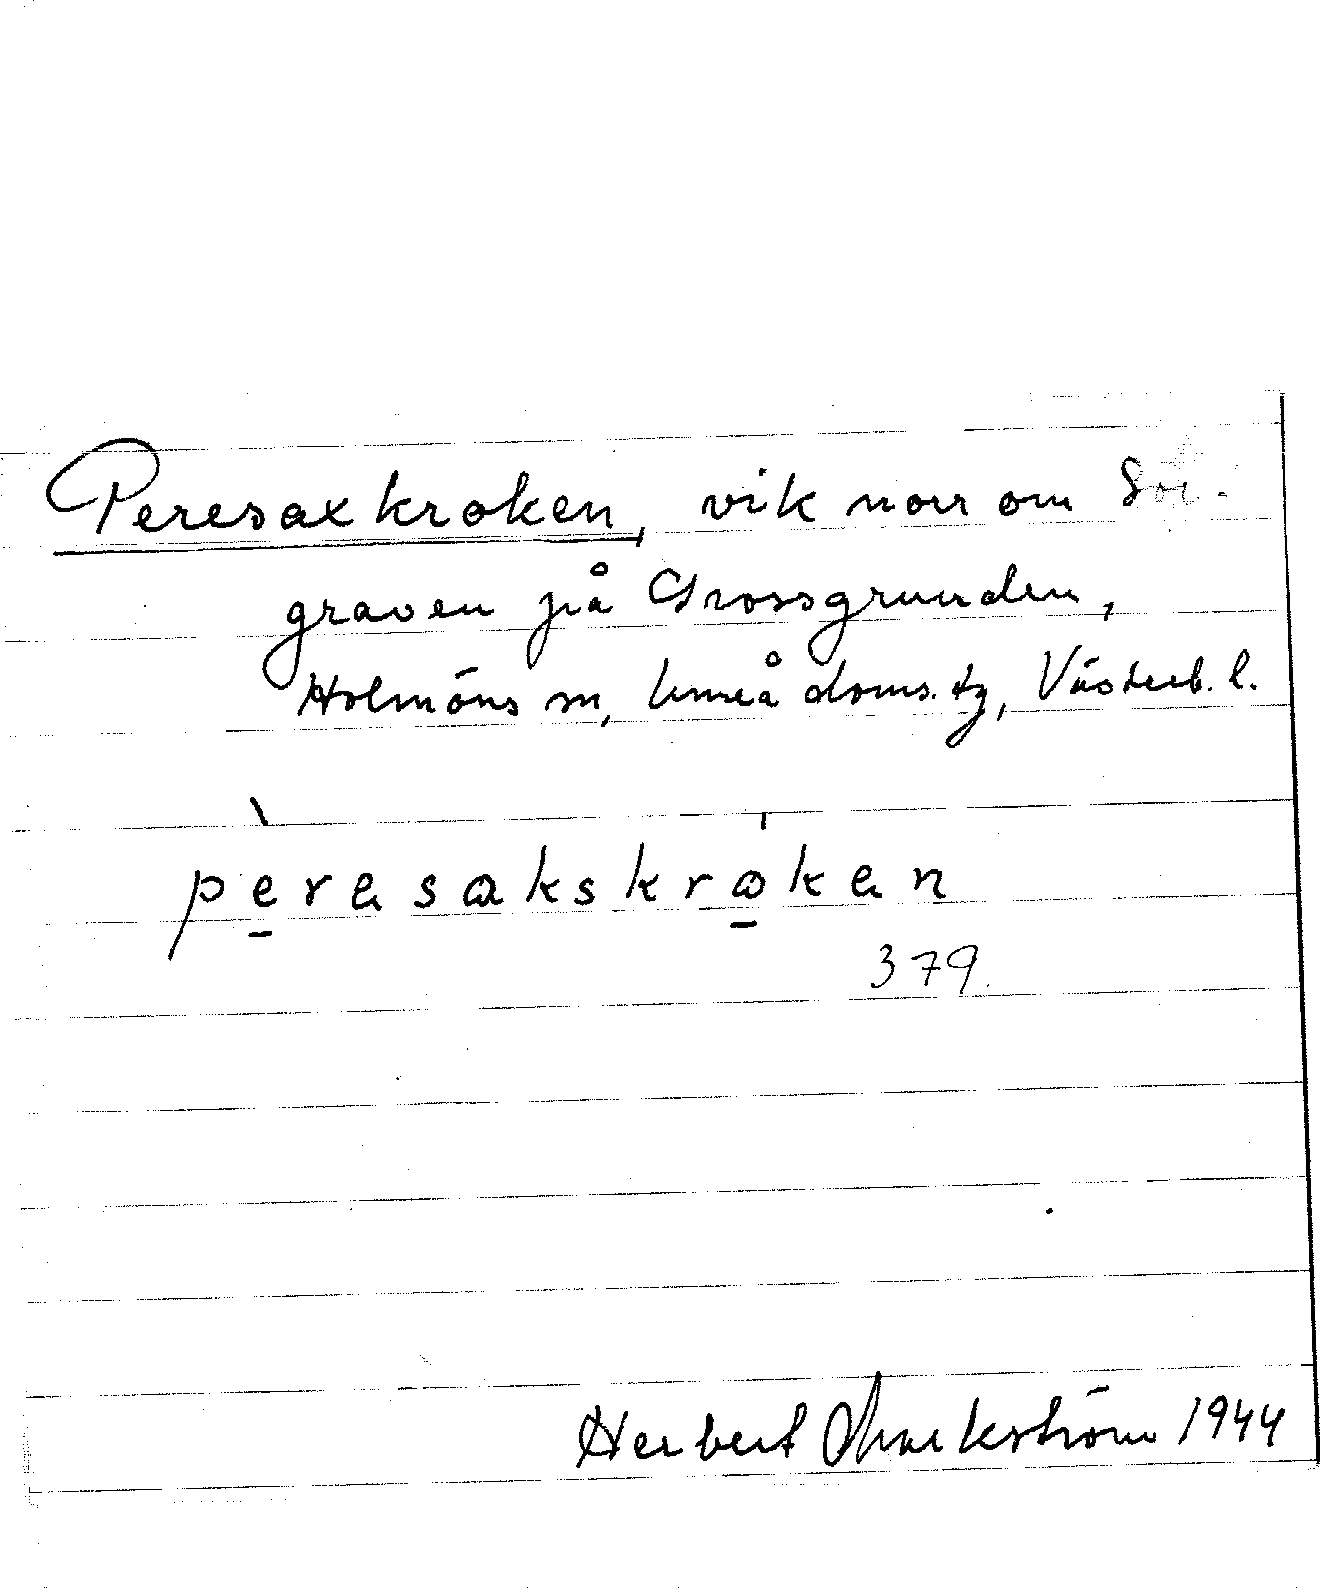 Peresaxkroken, vik norr om Sör-
graven på Grossgrunden,
Holmöns sn, Umeå doms. tg, Västerb. l.
pèrɐsakskrǻkɐn
379.
Herbert Markström 1944